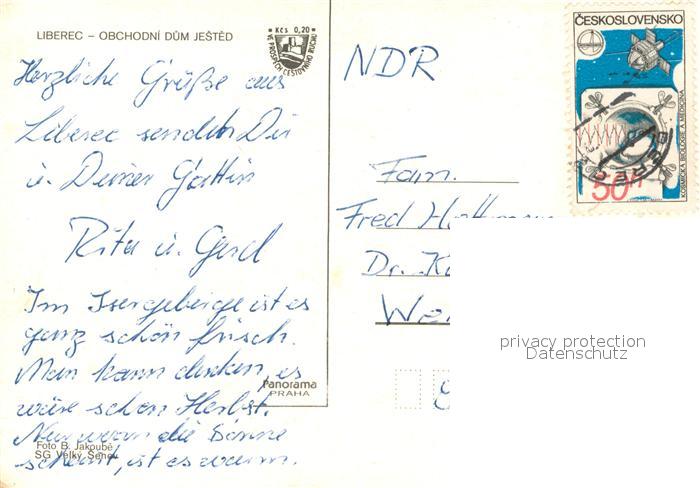 LIBEREC – OBCHODNÍ DŮM JEŠTĚD
Kčs 0,20
VE PROSPĚCH CESTOVNÍHO RUCHU
Herzliche Grüße aus
Liberec senden Dir
u. Deiner Gattin
Rita u. Gerd
Im Isergebirge ist es
ganz schön frisch.
Man kann denken, es
wäre schon Herbst.
Nur wenn die Sonne
scheint, ist es warm.
Panorama
PRAHA
Foto B. Jakoubě
SG Velký Šenov
NDR
Fam.
Fred
Dr.
ČESKOSLOVENSKO
50h
KOSMICKÁ BIOLOGIE A MEDICÍNA
privacy protection
Datenschutz